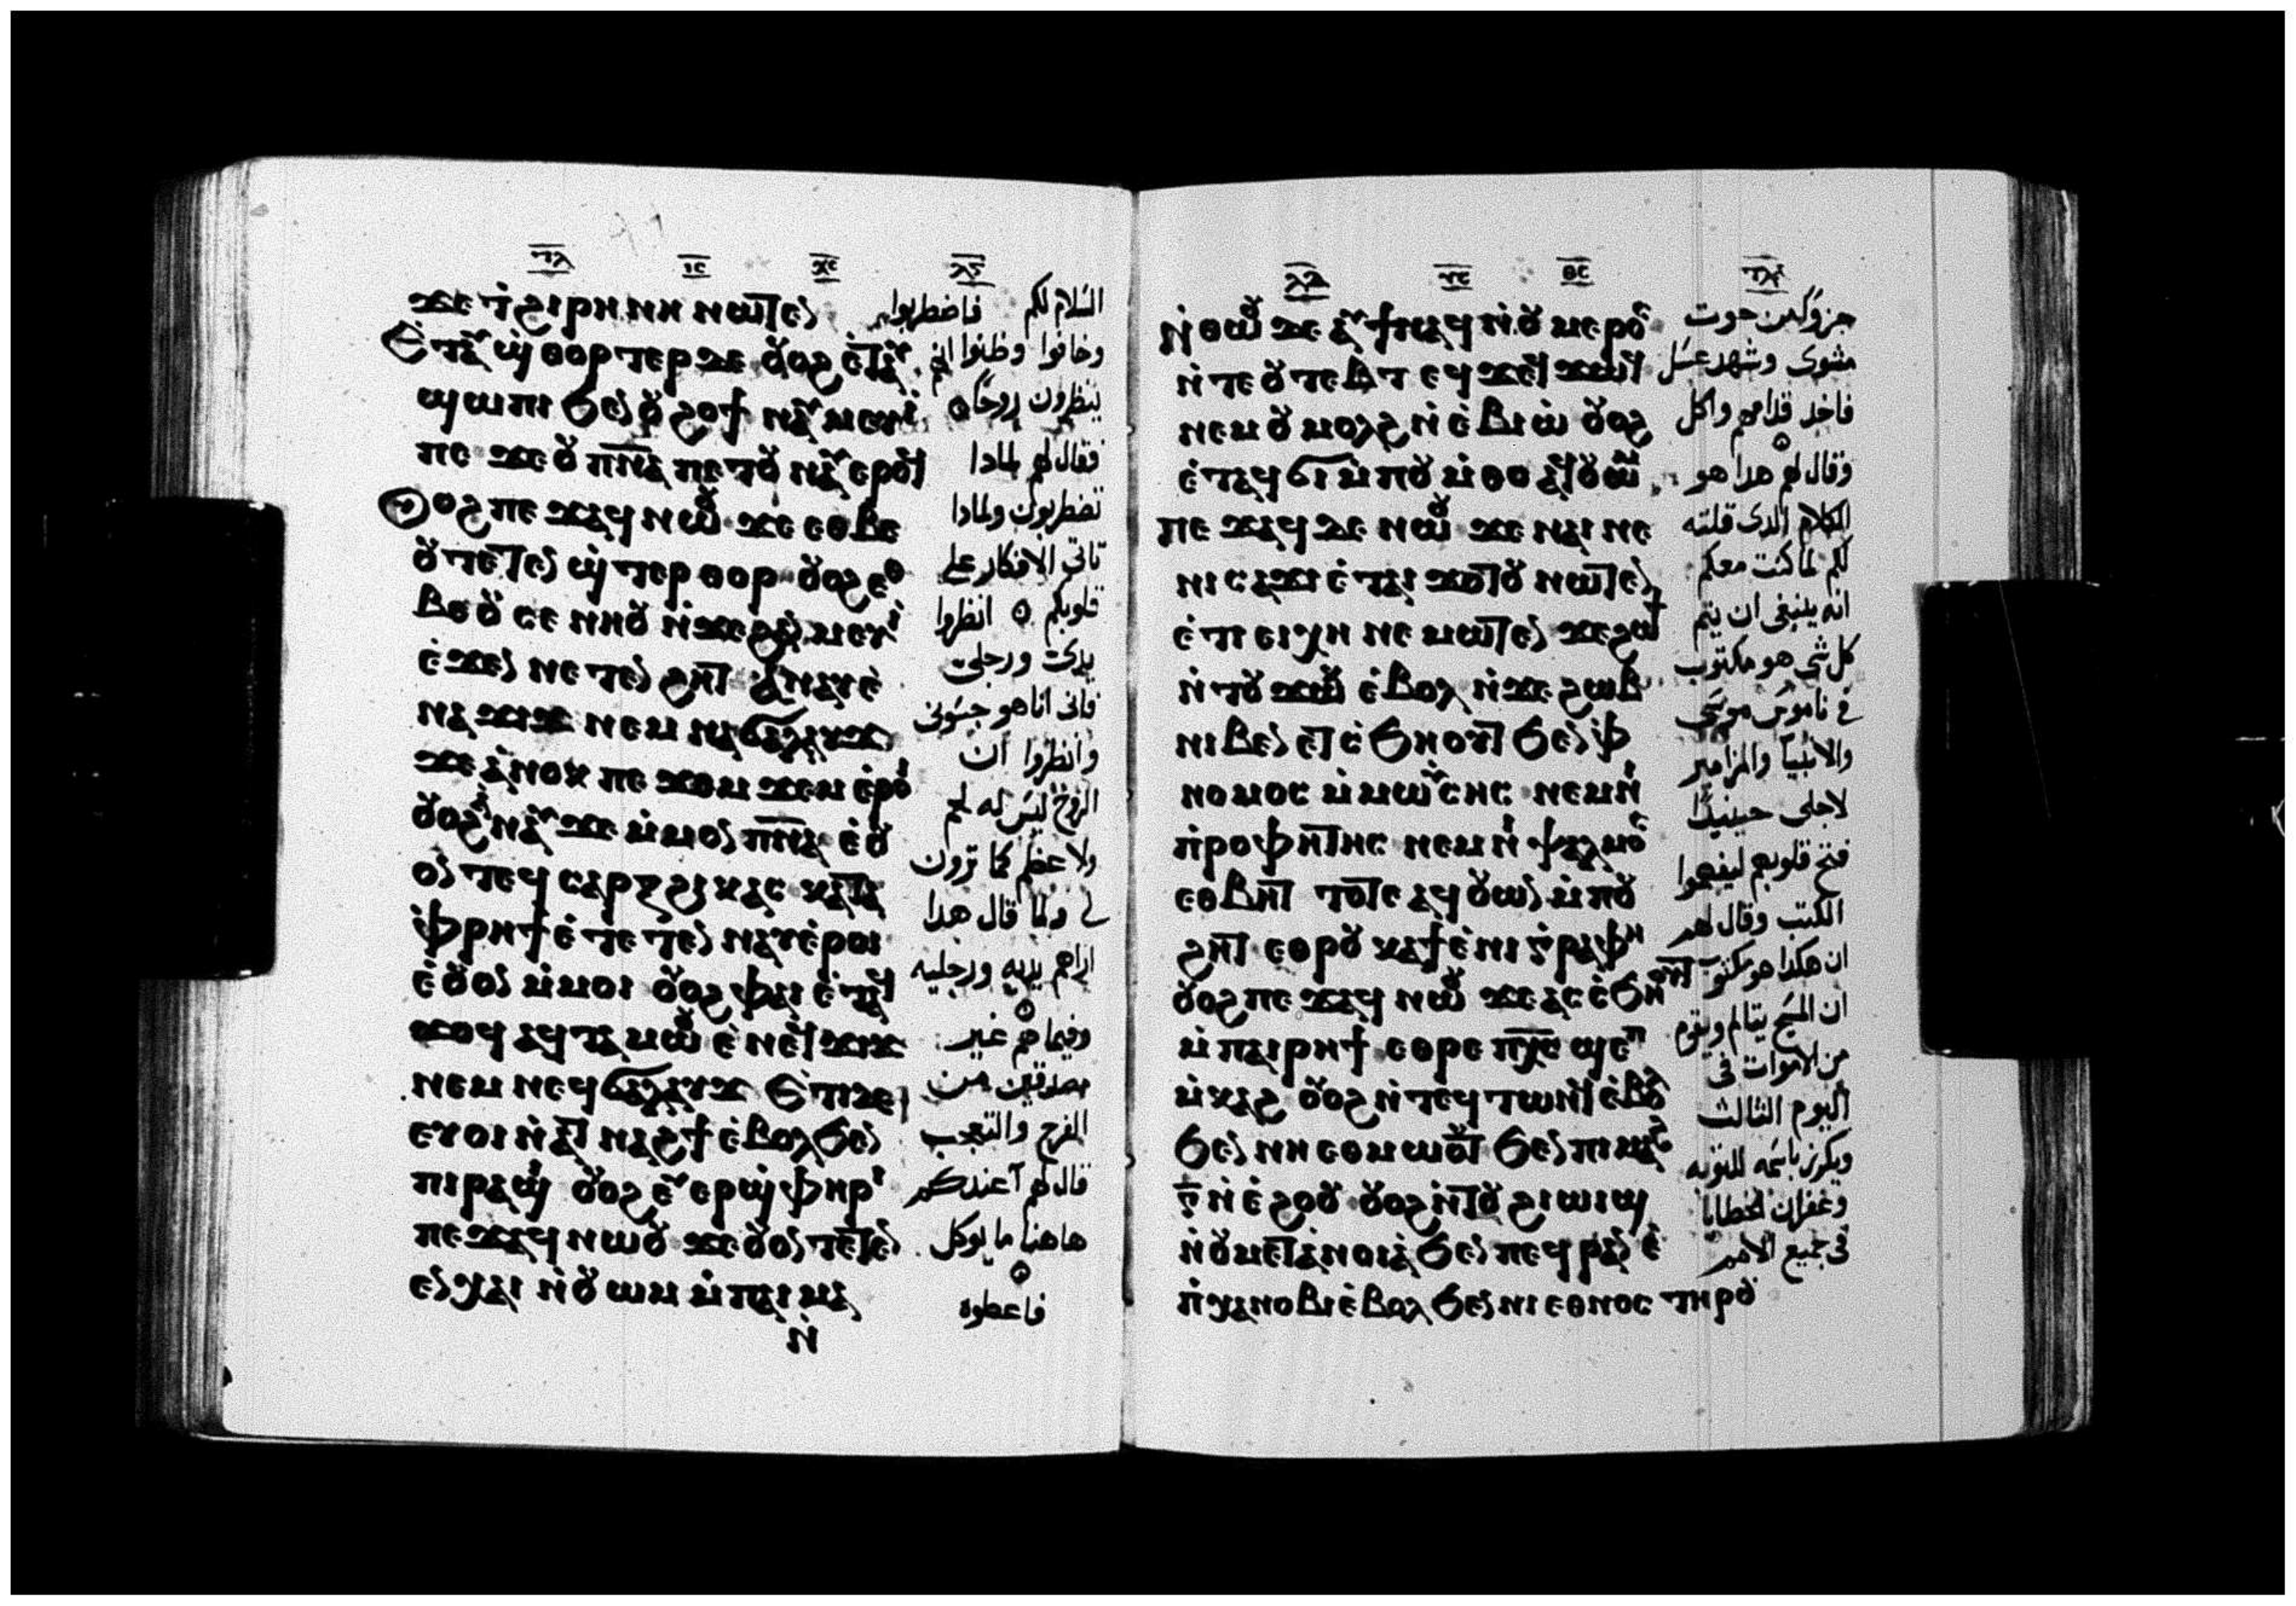 ϫⲉ ⲧ̀ϩⲓⲣⲏⲛⲏ ⲛⲱⲧⲉⲛ
Ⲉ̀ⲧⲁⲩϣ̀ⲑⲟⲣⲧⲉⲣ ⲇⲉ ⲟⲩⲟϩ ⲉ̀ⲧⲁⲩ
ϣⲱⲡⲓ ϧⲉⲛ ⲟⲩϩⲟϯ ⲛⲁⲩⲙⲉⲩⲓ̀
ⲡⲉ ϫⲉ ⲟⲩⲡ̅ⲛ̅ⲁ̅ ⲡⲉⲧⲟⲩⲛⲁⲩ ⲉⲣⲟϥ
Ⲟⲩⲟϩ ⲡⲉϫⲁϥ ⲛⲱⲟⲩ ϫⲉ ⲉⲑⲃⲉ
ⲟⲩ ⲧⲉⲧⲉⲛ ϣ̀ⲧⲉⲣⲑⲟⲣ ⲟⲩⲟϩ ⲉⲑ
ⲃⲉ ⲟⲩ ⲥⲉ ⲛⲏⲟⲩ ⲛ̀ϫⲉ ϩⲁⲛⲙⲉⲩⲓ̀
ⲉ̀ϫⲉⲛ ⲛⲉⲧⲉⲛ ϩⲏⲧ ⲁⲛⲁⲩ ⲉ̀
ⲛⲁϫⲓϫ ⲛⲉⲙ ⲛⲁϭⲁⲗⲁⲩϫ
ϫⲉ ⲁ̀ⲛⲟⲕ ⲡⲉ ϫⲟⲙϫⲉⲙ ⲉ̀ⲣⲟⲓ
ⲟⲩⲟϩ ⲁ̀ⲛⲁⲩ ϫⲉ ⲙ̀ⲙⲟⲛ ⲡ̅ⲛ̅ⲁ̅ ⲉ̀ⲟⲩ
ⲟⲛⲧⲉϥ ⲥⲁⲣⲝ ϩⲓ ⲕⲁⲥ ⲕⲁⲧⲁ
ⲫ̀ⲣⲏϯ ⲉ̀ⲧⲉⲧⲉⲛ ⲛⲁⲩ ⲉ̀ⲣⲟⲓ
ⲉ̀ⲟⲩⲟⲛ ⲙ̀ⲙⲟⲓ ⲟⲩⲟϩ ⲫⲁⲓ ⲉ̀ⲧⲁϥ
ϫⲟϥ ⲁϥⲧⲁⲙⲱⲟⲩ ⲉ̀ⲛⲉϥϫⲓϫ
ⲛⲉⲙ ⲛⲉϥϭⲁⲗⲁⲩϫ Ⲉ̀ⲧⲓ ⲇⲉ
ⲉⲩⲟⲓ ⲛ̀ⲁⲧ ⲛⲁϩϯ ⲉ̀ⲃⲟⲗ ϧⲉⲛ
ⲡⲓⲣⲁϣⲓ ⲟⲩⲟϩ ⲉⲩⲉⲣϣ̀ⲫⲏⲣⲓ
ⲡⲉϫⲁϥ ⲛⲱⲟⲩ ϫⲉ ⲟⲩⲟⲛⲧⲉⲧⲉⲛ
ⲉⲛⲭⲁⲓ ⲛ̀ⲟⲩⲱⲙ ⲙ̀ⲡⲁⲓⲙⲁ
ⲛ̀
السلام لكم فاضطربوا
وخافوا وظنوا انهم
ينظرون روحًا
فقال لهم لمادا
تضطربون ولمادا
تاتى الافكار على
قلوبكم انظروا
يدىّ ورجلىّ
فانى انا هو جسّونى
وانظروا ان
الروح ليس له لحم
ولا عظم كما ترون
لى ولما قال هدا
اراهم يديه ورجليه
وفيما هم غير
مصدقين من
الفرح والتعجب
قال لهم آعندكم
هاهنا ما يوكل
فاعطوه
ⲛ̀ⲑⲱⲟⲩ ⲇⲉ ⲁⲩϯ ⲛⲁϥ ⲛ̀ⲟⲩⲙⲉⲣⲟⲥ
ⲛ̀ⲧⲉ ⲟⲩⲧⲉⲃⲧ ⲉϥϫⲉϥϫⲱϥ
ⲛⲉⲙ ⲟⲩⲙⲟⲗϩ ⲛ̀ⲉ̀ⲃⲓⲱ̀ ⲟⲩⲟϩ
ⲉ̀ⲧⲁϥϭⲓ ⲙ̀ⲡⲟⲩⲙ̀ⲑⲟ ⲁϥⲟⲩⲱⲙ
ⲡⲉϫⲁϥ ⲇⲉ ⲛⲱⲟⲩ ϫⲉ ⲛⲁⲓ ⲛⲉ
ⲛⲓⲥⲁϫⲓ ⲉ̀ⲧⲁⲓ ϫⲟⲧⲟⲩ ⲛⲱⲧⲉⲛ
ⲉ̀ⲧⲓ ⲉⲓⲭⲏ ⲛⲉⲙⲱⲧⲉⲛ ϫⲉ ϩⲱϯ
ⲛ̀ⲧⲟⲩϫⲱⲕ ⲉ̀ⲃⲟⲗ ⲛ̀ϫⲉ ϩⲱⲃ
ⲛⲓⲃⲉⲛ ⲉⲧⲥ̀ϧⲏⲟⲩⲧ ϧⲉⲛ ⲫ̀
ⲛⲟⲙⲟⲥ ⲙ̀ⲙⲱⲩⲥⲏⲥ ⲛⲉⲙ ⲛⲓ
ⲡ̀ⲣⲟⲫⲏⲧⲏⲥ ⲛⲉⲙ ⲛⲓ ⲯⲁⲗⲙⲟⲥ
ⲉⲑⲃⲏⲧ ⲧⲟⲧⲉ ⲁϥⲟⲩⲱⲛ ⲙ̀ⲡⲟⲩ
ϩⲏⲧ ⲉⲑⲣⲟⲩ ⲕⲁϯ ⲉ̀ⲛⲓ ⲅ̀ⲣⲁⲫⲏ
ⲟⲩⲟϩ ⲡⲉϫⲁϥ ⲛⲱⲟⲩ ϫⲉ ⲁⲥⲥ̀ϧⲏⲟⲩⲧ
ⲙ̀ⲡⲁⲓⲣⲏϯ ⲉⲑⲣⲉ ⲡ̅ⲭ̅ⲥ̅ ϣⲉⲡ
ⲙ̀ⲕⲁϩ ⲟⲩⲟϩ ⲛ̀ⲧⲉϥ ⲧⲱⲛϥ ⲉ̀ⲃⲟⲗ
ϧⲉⲛ ⲛⲏ ⲉⲑⲙⲱⲟⲩⲧ ϧⲉⲛ ⲡⲓⲙⲁϩ
ⲅ̅ ⲛ̀ⲉ̀ϩⲟⲟⲩ ⲟⲩⲟϩ ⲛ̀ⲧⲟⲩ ϩⲓⲱⲓϣ
ⲛ̀ⲟⲩⲙⲉⲧⲁ̀ⲛⲟⲓⲁ̀ ϧⲉⲛ ⲡⲉϥⲣⲁⲛ ⲉ̀
ⲡ̀ⲭⲁ ⲛⲟⲃⲓ ⲉ̀ⲃⲟⲗ ϧⲉⲛ ⲛⲓ ⲉⲑⲛⲟⲥ ⲧⲏⲣⲟⲩ
جزو كمن حوت
مشوى وشهد عسل
فاخد قدامهم واكل
وقال لهم هدا هو
الكلام الدى قلته
لكم لما كنت معكم
انه ينبغى ان يتم
كل شى هو مكتوب
فى ناموس موسى
والانبيا والمزامير
لاجلى حينيدًا
فتح قلوبهم ليفهموا
الكتب وقال لهم
ان هكدا هو مكتوب
ان المسيح يتالم ويقوم
من الاموات فى
اليوم الثالث
ويكرز باسمه للتوبه
وغفران الخطايا
فى جميع الامم